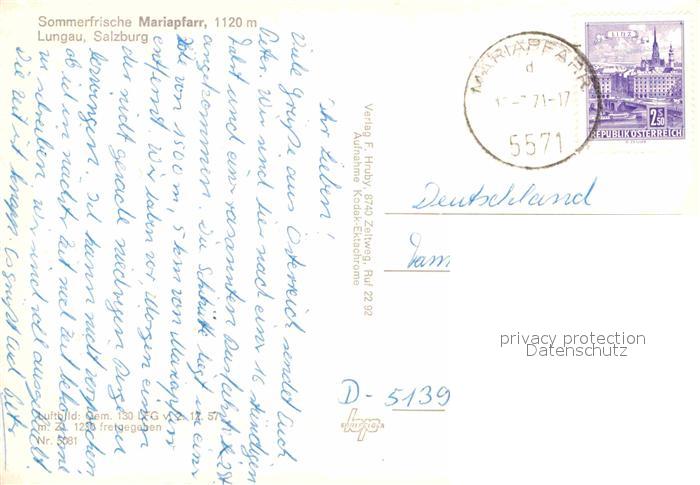 Sommerfrische Mariapfarr, 1120 m
Lungau, Salzburg
Ihr Lieben!
Viele Grüße aus Österreich sendet Euch
Peter. Wir sind hier nach einer 16 stündigen
Fahrt und einer rasanten Auffahrt z. Zt.
angekommen. Die Skihütte liegt in einer
Höhe von 1500 m, 5 km von Mariapfarr
entfernt. Wir haben vor, Morgen einen
der nicht gerade niedrigen Berge zu
bezwingen. Ich kann nicht versprechen
ob ich in nächster Zeit viel Zeit bekomme
zu schreiben, wir sind voll ausgefüllt
Die Zeit ist knapp. Es grüßt Euch Peter
Luftbild: Gem. 130 LFG v. 2. 12. 57
m. Zl. 1230 freigegeben
Nr. 5081
Verlag F. Hruby, 8740 Zeltweg, Ruf 22 92
Aufnahme Kodak-Ektachrome
MARIAPFARR
d
71-17
5571
LINZ
2.S50
REPUBLIK ÖSTERREICH
Deutschland
Dam
privacy protection
Datenschutz
D-5139